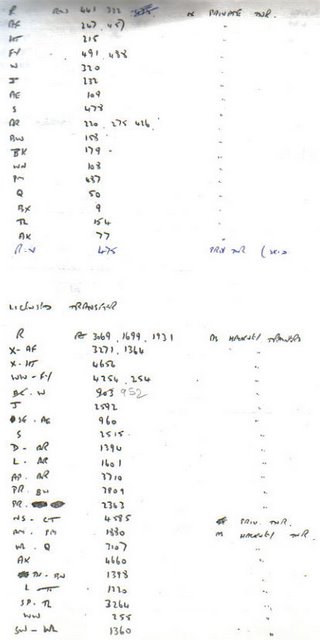 R 441 332 as PRIVATE TNR.
AF 247, 457 "
HT 215 "
FY 491, 488 "
W 320 "
J 232 "
AE 109 "
S 478 "
AR 220, 275 426 "
BW 158 "
BK 179 - "
WN 108 "
PM 437 "
Q 50 "
BX 9 "
TR 154 "
AK 77 "
R-N 475 PRIV TNR
LICENSED TRANSFER
R 3469, 1699, 1931 AS HACKNEY TRANSFER
X- AF 3271, 1364 "
X- HT 4656 "
WW - FY 4254, 254 "
W 903 952 "
J 2592 "
AE 960 "
S 2515 "
D - AR 1394 "
L - AR 1601 "
AP. AR 3710 "
PR. BW 3909 "
PR. 2363 "
NS - CT 4585 PRIV. TNR.
PM 1880 as HACKNEY TNR.
WR - Q 7107 "
AK 4660 "
1398 "
L 1220 "
SP. TR 3264 "
WW 255 "
SW - WR 1360 "